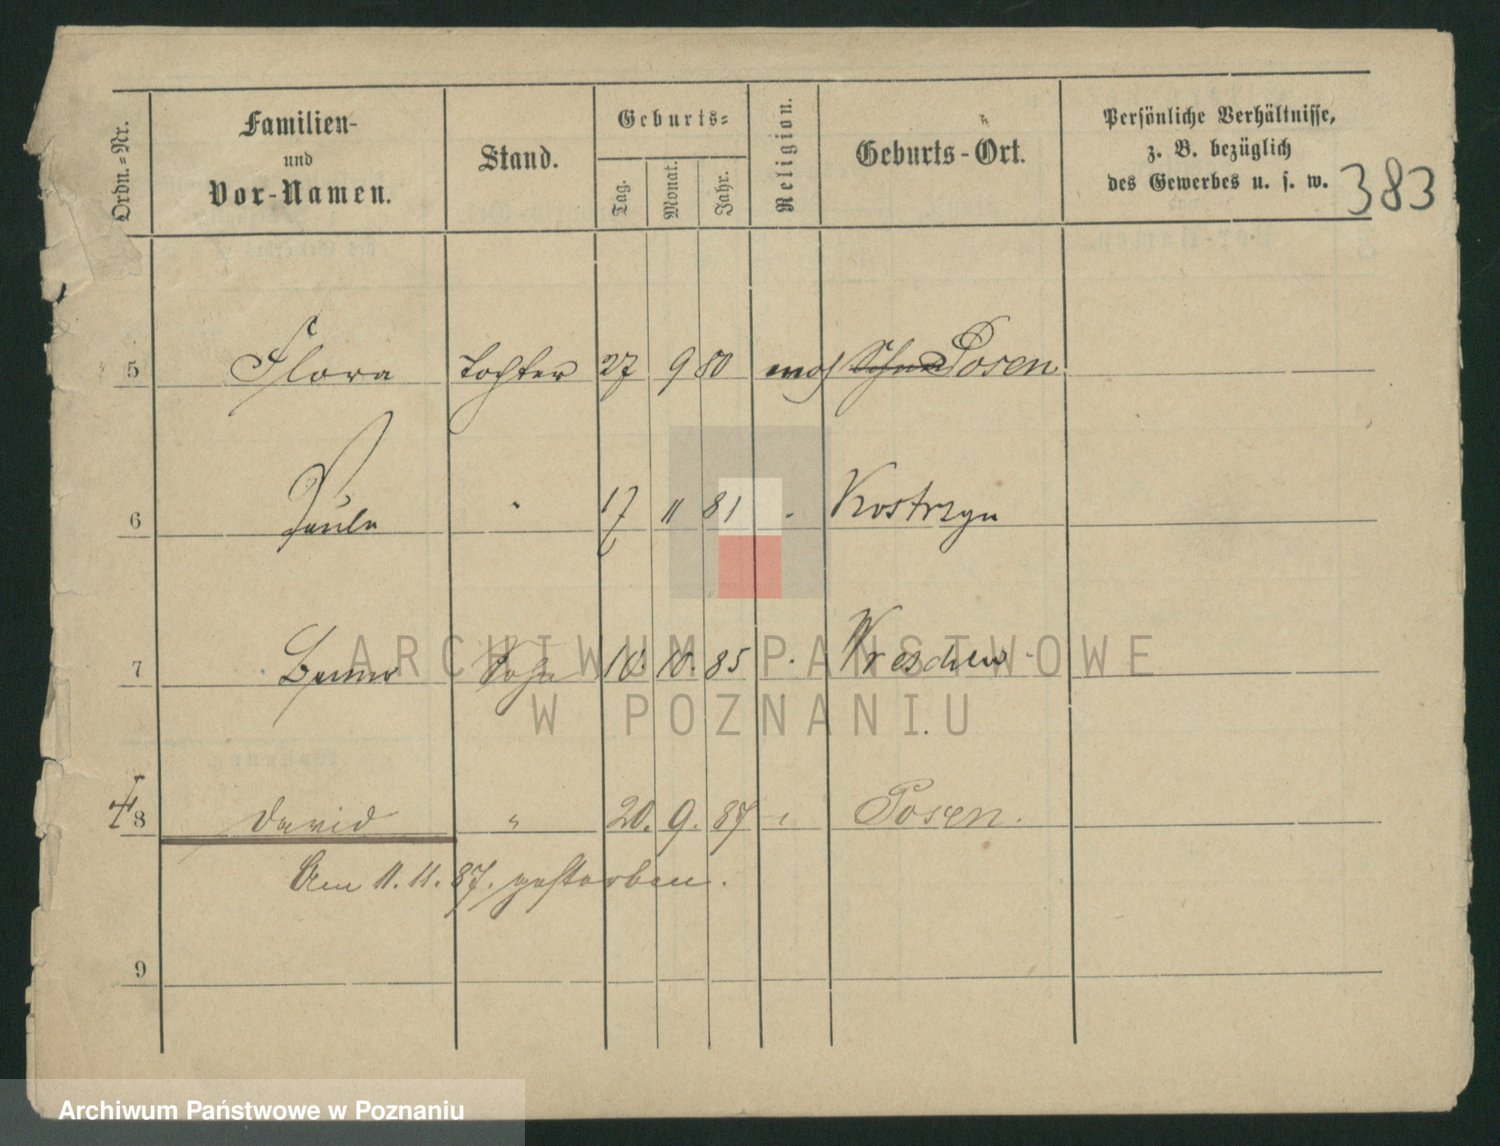 Ordn.-Nr. Familien- und Vor-Namen. Stand. Geburts- Tag. Monat. Jahr. Religion. Geburts-Ort. Persönliche Verhältnisse, z. B. bezüglich des Gewerbes u. s. w.
383
5 Flora Tochter 27 9 80 mos Posen
6 Paula " 17 11 81 " Kostrzyn
7 Benno Sohn 10. 10. 85 " Wreschen
ARCHIWUM PAŃSTWOWE
W POZNANIU
8 David " 20. 9. 87 " Posen.
Am 11. 11. 87. gestorben.
9
Archiwum Państwowe w Poznaniu